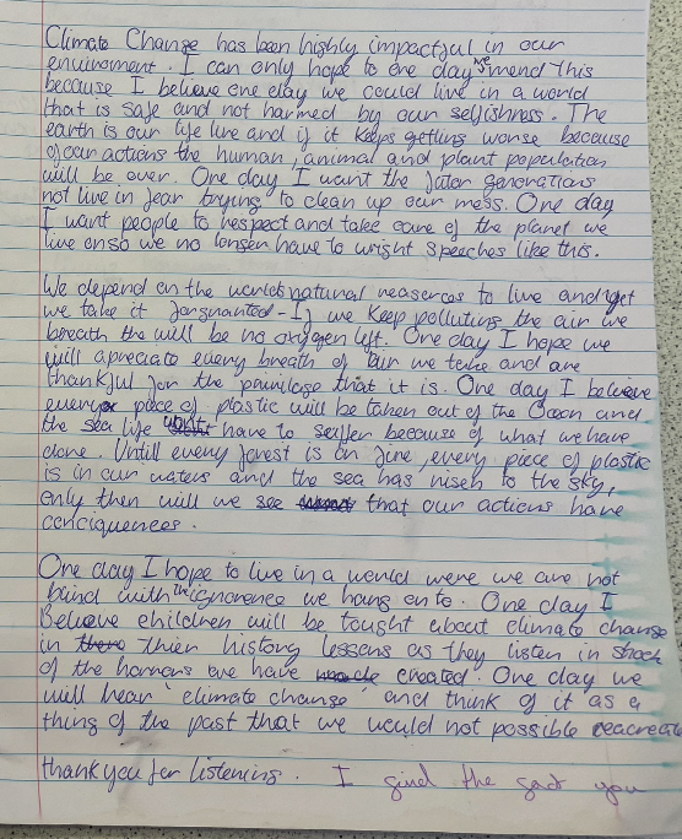 Climate Change has been highly impactful in our
enviroment. I can only hope to one day we mend this
because I believe one day we could live in a world
that is safe and not harmed by our selfishness. The
earth is our life line and if it keeps getting worse because
of our actions the human, animal and plant population
will be over. One day I want the later generations
not live in fear trying to clean up our mess. One day
I want people to respect and take care of the planet we
live on so we no longer have to wright speeches like this.
We depend on the worlds natural reaserces to live and yet
we take it for granted - If we keep polluting the air we
breath the will be no oxygen left. One day I hope we
will apreciate every breath of air we take and are
thankful for the privilage that it is. One day I believe
every piece of plastic will be taken out of the Ocean and
the sea life wont have to seffer because of what we have
done. Untill every forest is on fire, every piece of plastic
is in our waters and the sea has risen to the sky,
only then will we see that our actions have
conciquences.
One day I hope to live in a world were we are not
blind with the ignorence we hang onto. One day I
Believe children will be tought about climate change
in thier history lessons as they listen in shock
of the horrors we have created. One day we
will hear 'climate change' and think of it as a
thing of the past that we would not possible reacreate
thank you for listening. I find the fact you